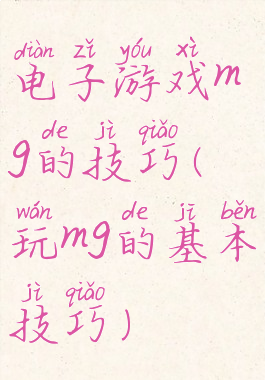 diàn zǐ yóu xì
电子游戏m
de jì qiǎo
g的技巧(
wán de jī běn
玩mg的基本
jì qiǎo
技巧)